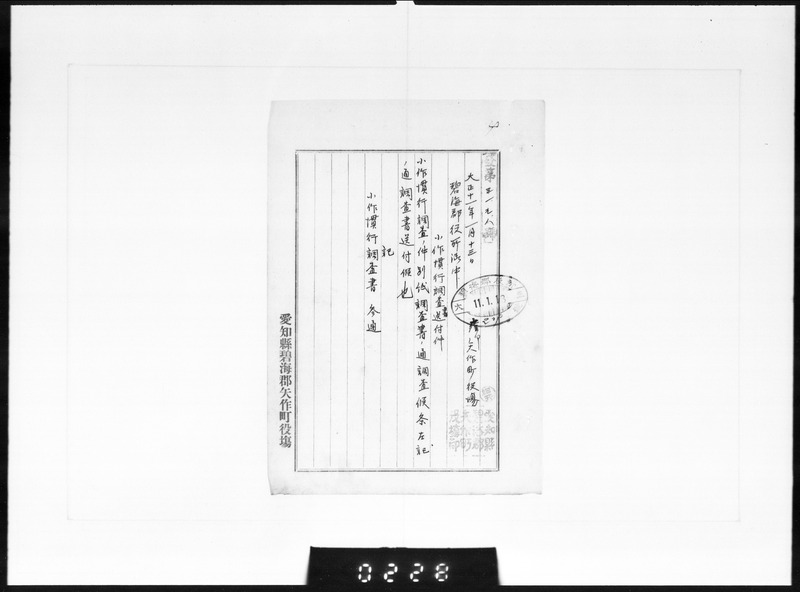 大正十一年一月十三日
矢作町役場
碧海郡役所御中
小作慣行調査書送付件
小作慣行調査ノ件別紙調査書ノ通調査候条左記
ノ通調査書送付候也
記
小作慣行調査書 参通
愛知縣碧海郡矢作町役場
11.1.1
0228